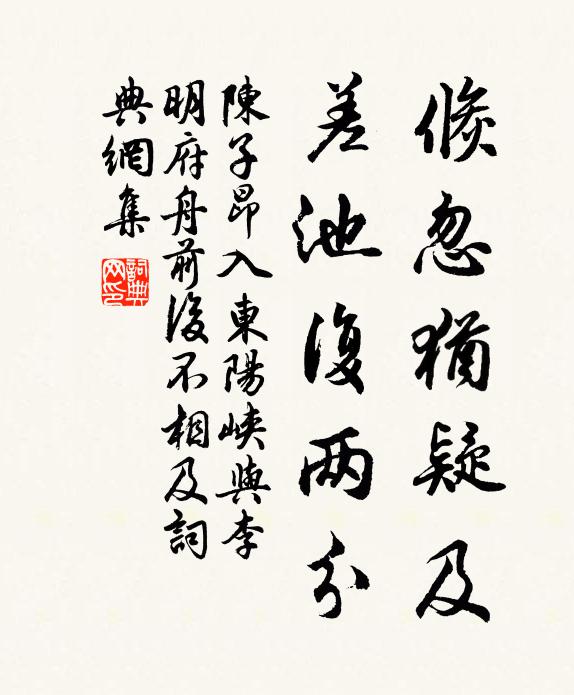 倐忽猶疑及
差池復两分
陳子昂入東陽峽與李
明府舟前後不相及詞
典網集
詞典
网印